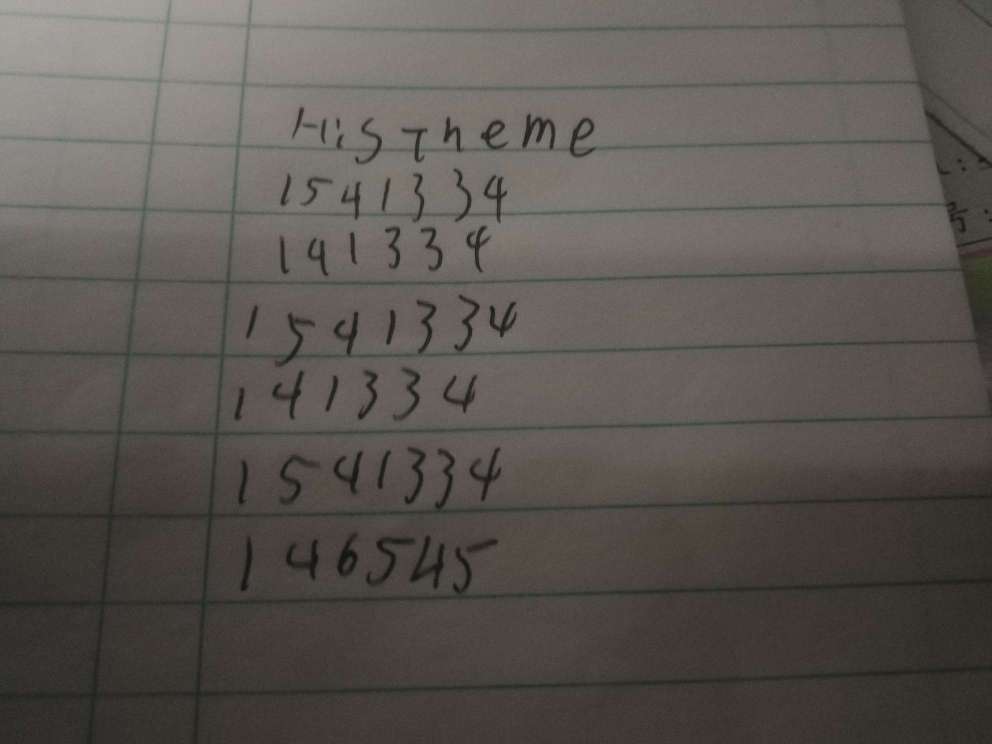 His Theme
1541334
141334
1541334
141334
1541334
146545
号: